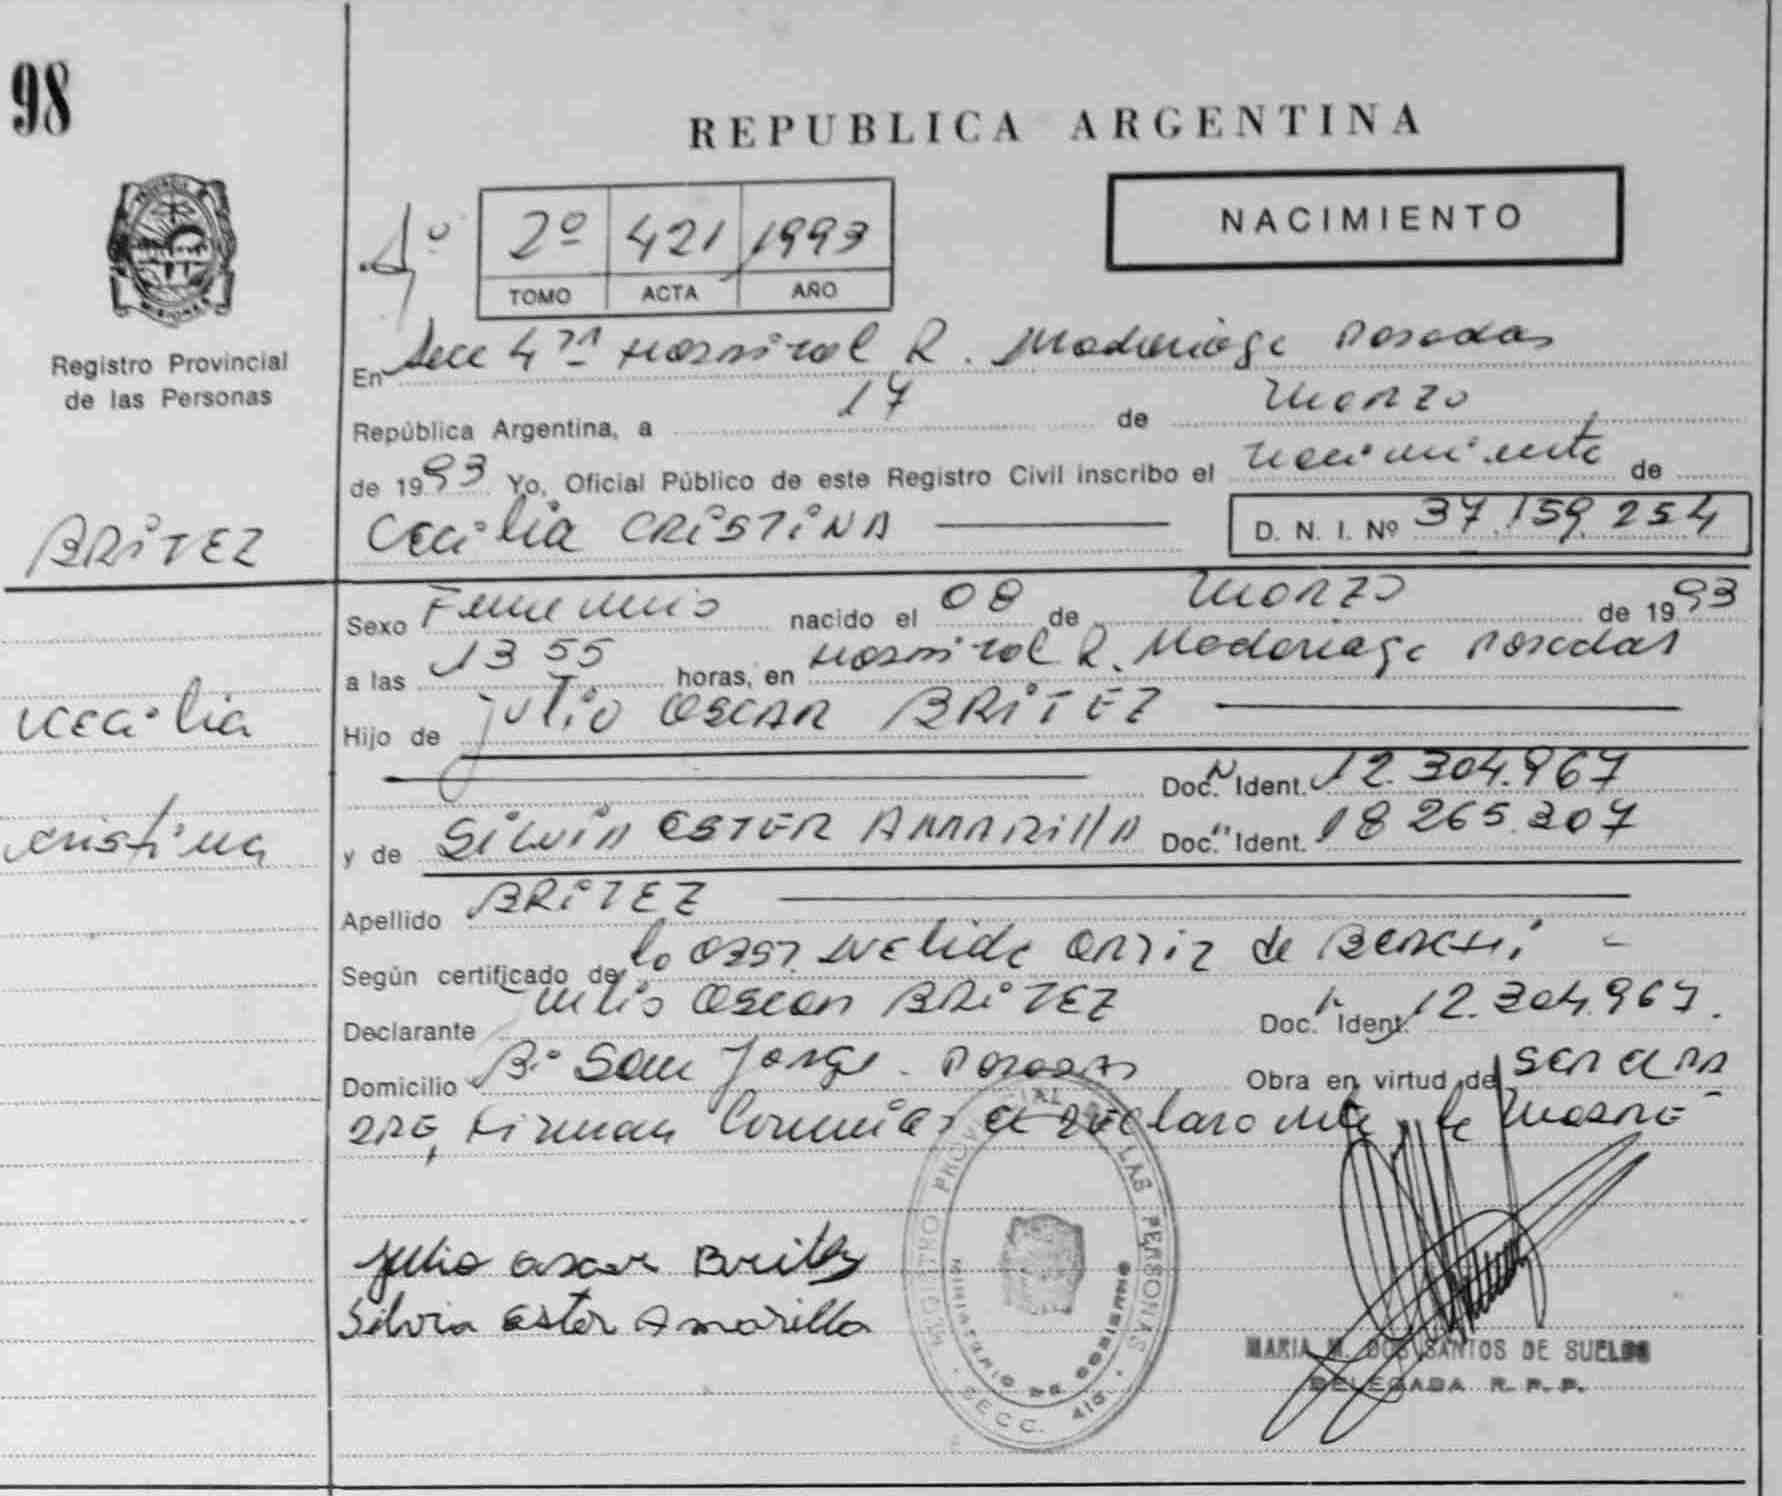 98
REPUBLICA ARGENTINA
NACIMIENTO
2º 421 1993
TOMO ACTA AÑO
Registro Provincial
de las Personas
En Secc 4ta Hospital R. Madariaga Posadas
República Argentina, a 17 de Marzo
de 1993 Yo, Oficial Público de este Registro Civil inscribo el nacimiento de
BRITEZ
Cecilia CRISTINA D. N. I. Nº 37.159.254
Sexo Femenino nacido el 08 de Marzo de 1993
a las 13 55 horas, en Hospital R. Madariaga Posadas
Cecilia
Hijo de Julio OSCAR BRITEZ
Doc. Ident. 12.304.967
cristina
y de SILVIA ESTER AMARILLA Doc. Ident. 18 265.307
Apellido BRITEZ
Según certificado de la Obst. Nelide Ortiz de
Declarante Julio Oscar BRITEZ Doc. Ident. 12.304.967.
Domicilio Bº San Jorge. Posadas Obra en virtud de ser el PA
DRE, Firman Conmigo el declarante y la Madre
Julio oscar Britez
Silvia ester Amarilla
REGISTRO PROVINCIAL DE LAS PERSONAS
MINISTERIO DE GOBIERNO
SECC. 4ta.
MARIA M. DOS SANTOS DE SUELDO
DELEGADA R. P. P.